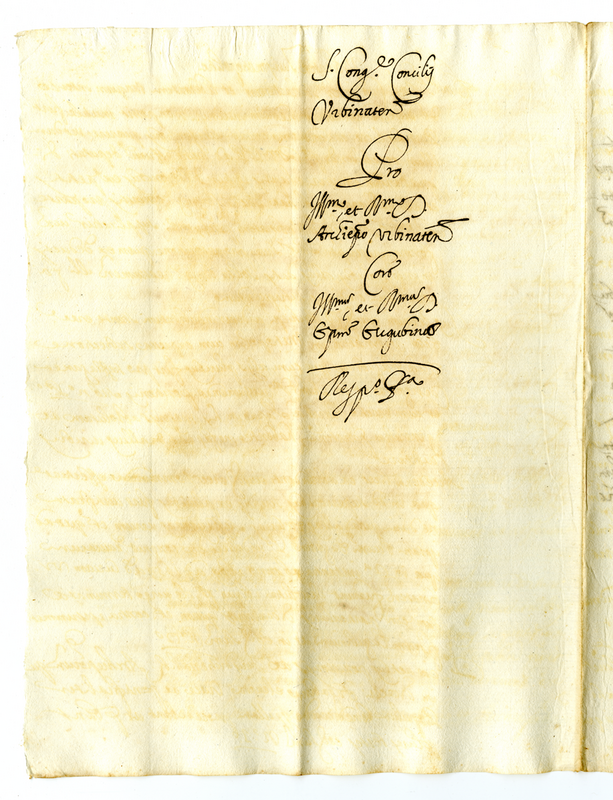 S. Cong.e Concilij
Vrbinaten
Pro
Illmo et Rmo D.
Archiepo Vrbinaten
Cora
Illmus et Rmus D
Epus Eugubinus
Resp.o